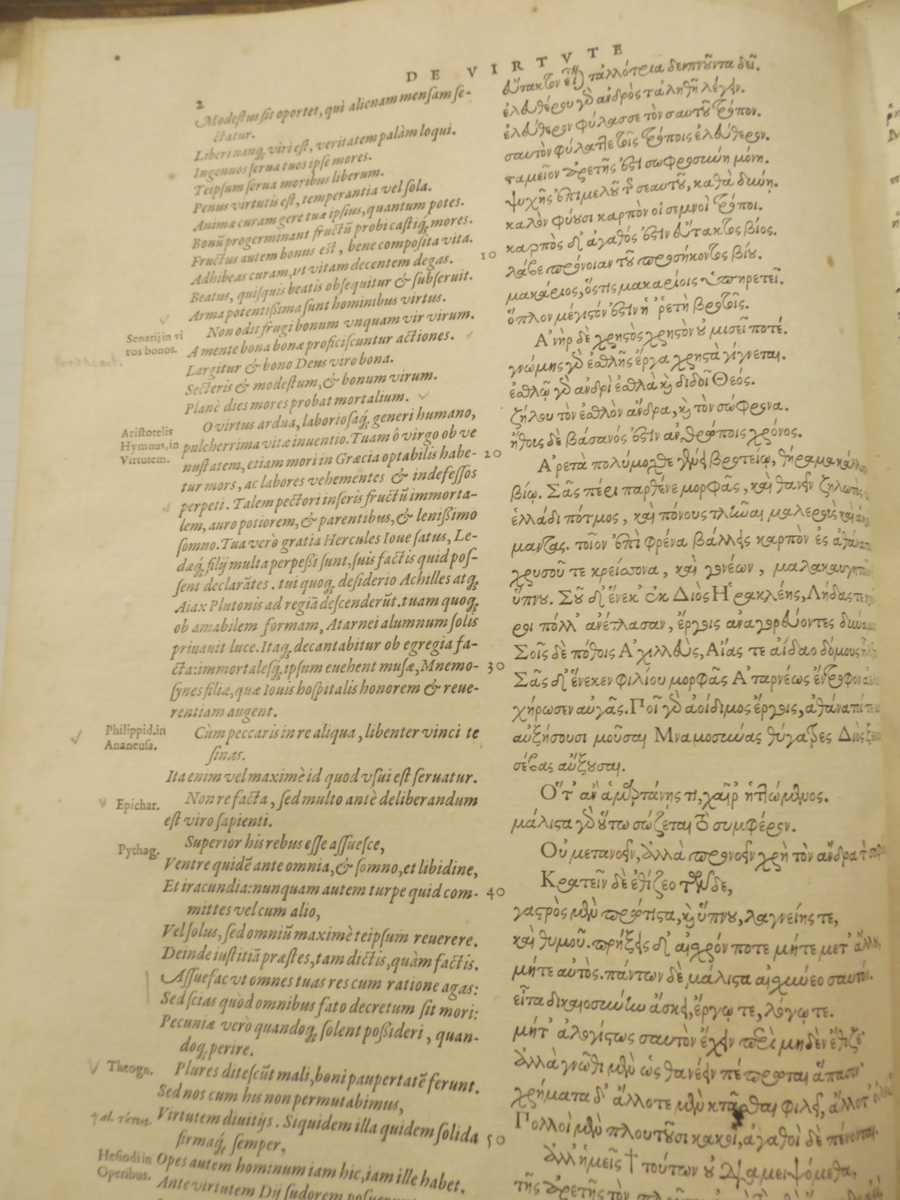 DE VIRTVTE
2
Modestus sit oportet, qui alienam mensam se-
ctatur.
Liberi nanq; viri est, veritatem palàm loqui.
Ingenuos serua tuos ipse mores.
Teipsum serua moribus liberum.
Penus virtutis est, temperantia vel sola.
Animæ curam gere tuæ ipsius, quantum potes.
Bonũ progerminant fructũ probi castiq; mores.
Fructus autem bonus est, bene composita vita.
Adhibeas curam, vt vitam decentem degas.
Beatus, quisquis beatis obsequitur & subseruit.
Arma potentissima sunt hominibus virtus.
Senarij in vi
ros bonos.
Non odit frugi bonum vnquam vir virum.
A mente bona bonæ proficiscuntur actiones.
Largitur & bono Deus viro bona.
Secteris & modestum, & bonum virum.
Planè dies mores probat mortalium.
Aristotelis
Hymnus, in
Virtutem.
O virtus ardua, laboriosaq; generi humano,
pulcherrima vitæ inuentio. Tuam ô virgo ob ve
nustatem, etiam mori in Græcia optabilis habe-
tur mors, ac labores vehementes & indefessos
perpeti. Talem pectori inseris fructũ immorta-
lem, auro potiorem, & parentibus, & lenissimo
somno. Tua verò gratia Hercules Ioue satus, Le-
dæq; filij multa perpessi sunt, suis factis quid pos-
sent declarãtes. tui quoq; desiderio Achilles atq;
Aiax Plutonis ad regiã descenderũt. tuam quoq;
ob amabilem formam, Atarnei alumnum solis
priuauit luce. Itaq; decantabitur ob egregia fa-
cta: immortalesq; ipsum euehent musæ, Mnemo-
synes filiæ, quæ Iouis hospitalis honorem & reue-
rentiam augent.
Philippid. in
Ananeusa.
Cùm peccaris in re aliqua, libenter vinci te
sinas.
Ita enim vel maximè id quod vsui est seruatur.
Epichar.
Non re facta, sed multo antè deliberandum
est viro sapienti.
Pythag.
Superior his rebus esse assuesce,
Ventre quidẽ ante omnia, & somno, et libidine,
Et iracundia: nunquam autem turpe quid com-
mittes vel cum alio,
Vel solus, sed omniũ maximè teipsum reuerere.
Deinde iustitiã præstes, tam dictis, quàm factis.
Assuefac vt omnes tuas res cum ratione agas:
Sed scias quod omnibus fato decretum sit mori:
Pecuniæ verò quandoq; solent possideri, quan-
doq; perire.
Theogn.
Plures ditescũt mali, boni paupertatẽ ferunt.
Sed nos cum his non permutabimus,
Virtutem diuitijs. Siquidem illa quidem solida
firmaq; semper,
Hesiodi in
Operibus.
Opes autem hominum iam hic, iam ille habet.
Ante virtutem Dij sudorem
10
20
30
40
50
εὔτακτον εἶναι τἀλλότρια δειπνοῦντα δεῖ.
ἐλευθέρου γὰρ ἀνδρὸς τἀληθῆ λέγειν.
ἐλεύθερον φύλασσε τὸν σαυτοῦ τρόπον.
σαυτὸν φύλαττε τοῖς τρόποις ἐλεύθερον.
ταμεῖον ἀρετῆς ἐστι σωφροσύνη μόνη.
ψυχῆς ἐπιμελοῦ τῆς σεαυτοῦ, καθὰ δύνῃ.
καλὸν φύουσι καρπὸν οἱ σεμνοὶ τρόποι.
καρπὸς δ' ἀγαθός ἐστιν εὔτακτος βίος.
λάβε πρόνοιαν τοῦ προσήκοντος βίου.
μακάριος, ὅστις μακαρίοις ὑπηρετεῖ.
ὅπλον μέγιστόν ἐστιν ἡ ἀρετὴ βροτοῖς.
Ἀνὴρ δὲ χρηστὸς χρηστὸν οὐ μισεῖ ποτέ.
γνώμης γὰρ ἐσθλῆς ἔργα χρηστὰ γίγνεται.
ἐσθλῷ γὰρ ἀνδρὶ ἐσθλὰ καὶ διδοῖ Θεός.
ζήλου τὸν ἐσθλὸν ἄνδρα, καὶ τὸν σώφρονα.
ἤθους δὲ βάσανός ἐστιν ἀνθρώποις χρόνος.
Ἀρετὰ πολύμοχθε γένει βροτείῳ, θήραμα κάλλιστον
βίῳ. Σᾶς πέρι παρθένε μορφᾶς, καὶ θανεῖν ζηλωτὸς
ἑλλάδι πότμος, καὶ πόνους τλῆναι μαλεροὺς καὶ
μαντας. τοῖον ἐπὶ φρένα βάλλεις καρπὸν ἐς
χρυσοῦ τε κρείσσονα, καὶ γονέων, μαλακαυγητοῖο
ὕπνου. Σοῦ δ' ἕνεκ' ἐκ Διὸς Ἡρακλέης, Λήδας τε
ροι πόλλ' ἀνέτλασαν, ἔργοις ἀναγορεύοντες
Σοῖς δὲ πόθοις Ἀχιλλεὺς, Αἴας τε ἀίδαο δόμους
Σᾶς δ' ἕνεκεν φιλίου μορφᾶς Ἀταρνέως ἔντροφον
χήρωσεν αὐγάς. Τοὶ γὰρ ἀοίδιμος ἔργοις,
αὐξήσουσι μοῦσαι Μναμοσύνας θύγατρες Διὸς
σέβας αὔξουσαι.
Ὅτ' ἂν ἁμαρτάνῃς τι, χαῖρ' ἡττώμενος.
μάλιστα γὰρ οὕτω σώζεται τὸ συμφέρον.
Οὐ μετανοεῖν, ἀλλὰ προνοεῖν χρὴ τὸν ἄνδρα
Κρατεῖν δὲ ἐθίζεο τῶνδε,
γαστρὸς μὲν πρώτιστα, καὶ ὕπνου, λαγνείης τε,
καὶ θυμοῦ. πρήξεις δ' αἰσχρόν ποτε μήτε μετ' ἄλλου
μήτε αὐτός. πάντων δὲ μάλιστα αἰσχύνεο σαυτόν.
εἶτα δικαιοσύνην ἄσκει, ἔργῳ τε, λόγῳ τε.
μήτ' ἀλογίστως σαυτὸν ἔχειν περὶ μηδὲν ἔθιζε
ἀλλὰ γνῶθι μὲν ὡς θανέειν πέπρωται ἅπασιν
χρήματα δ' ἄλλοτε μὲν κτᾶσθαι φιλεῖ, ἄλλοτ'
Πολλοὶ μὲν πλουτοῦσι κακοὶ, ἀγαθοὶ δὲ πένονται.
ἀλλ' ἡμεῖς † τούτων οὐ διαμειψόμεθα,
τῆς ἀρετῆς